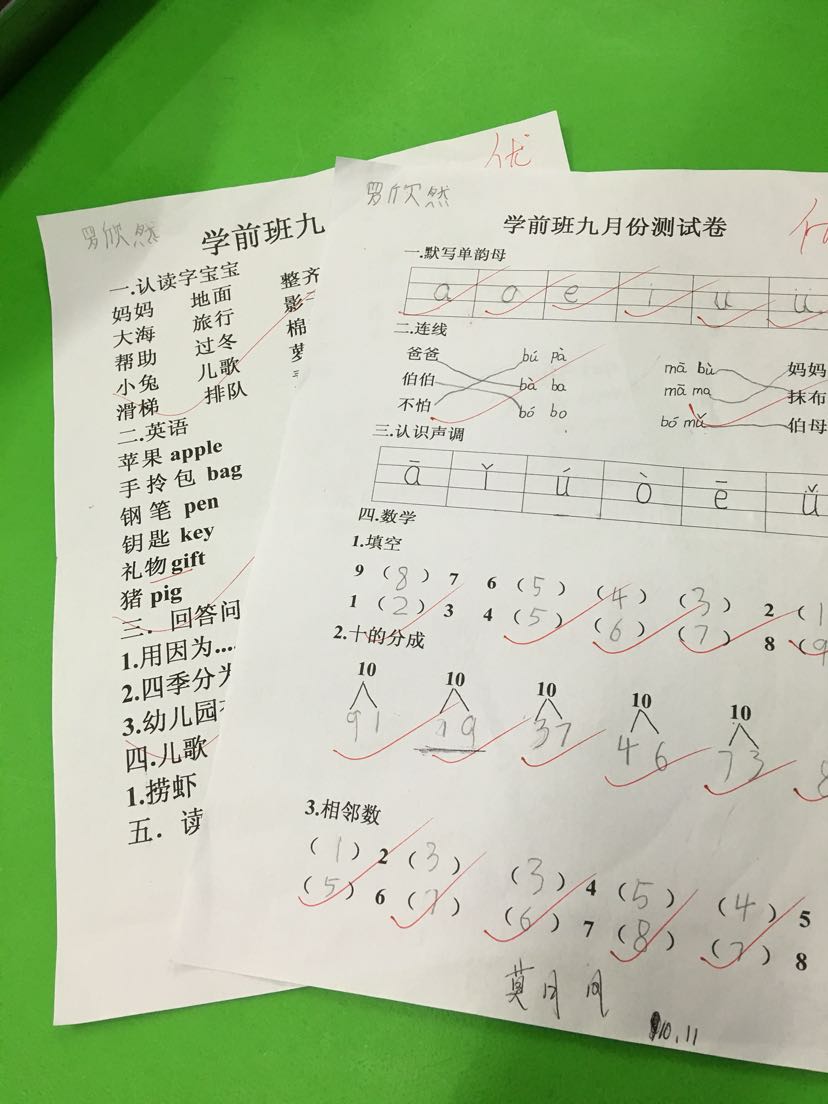 优
罗欣然
学前班九
一.认读字宝宝
妈妈 地面 整齐
大海 旅行 影
帮助 过冬 棉
小兔 儿歌
滑梯 排队
二.英语
苹果 apple
手拎包 bag
钢笔 pen
钥匙 key
礼物 gift
猪 pig
三.回答问
1.用因为...
2.四季分为
3.幼儿园
四.儿歌
1.捞虾
五.读
罗欣然
学前班九月份测试卷
一.默写单韵母
a o e i u ü
二.连线
爸爸 bú pà mā bù 妈妈
伯伯 bà ba mā ma 抹布
不怕 bó bo bó mǔ 伯母
三.认识声调
ā ǐ ú ò ē ǚ
四.数学
1.填空
9 (8) 7 6 (5) (4) (3) 2 (1
1 (2) 3 4 (5) (6) (7) 8 (9
2.十的分成
10 10 10 10 10
9 1 1 9 3 7 4 6 7 3 8
3.相邻数
(1) 2 (3) (3) 4 (5) (4) 5
(5) 6 (7) (6) 7 (8) (7) 8
10.11